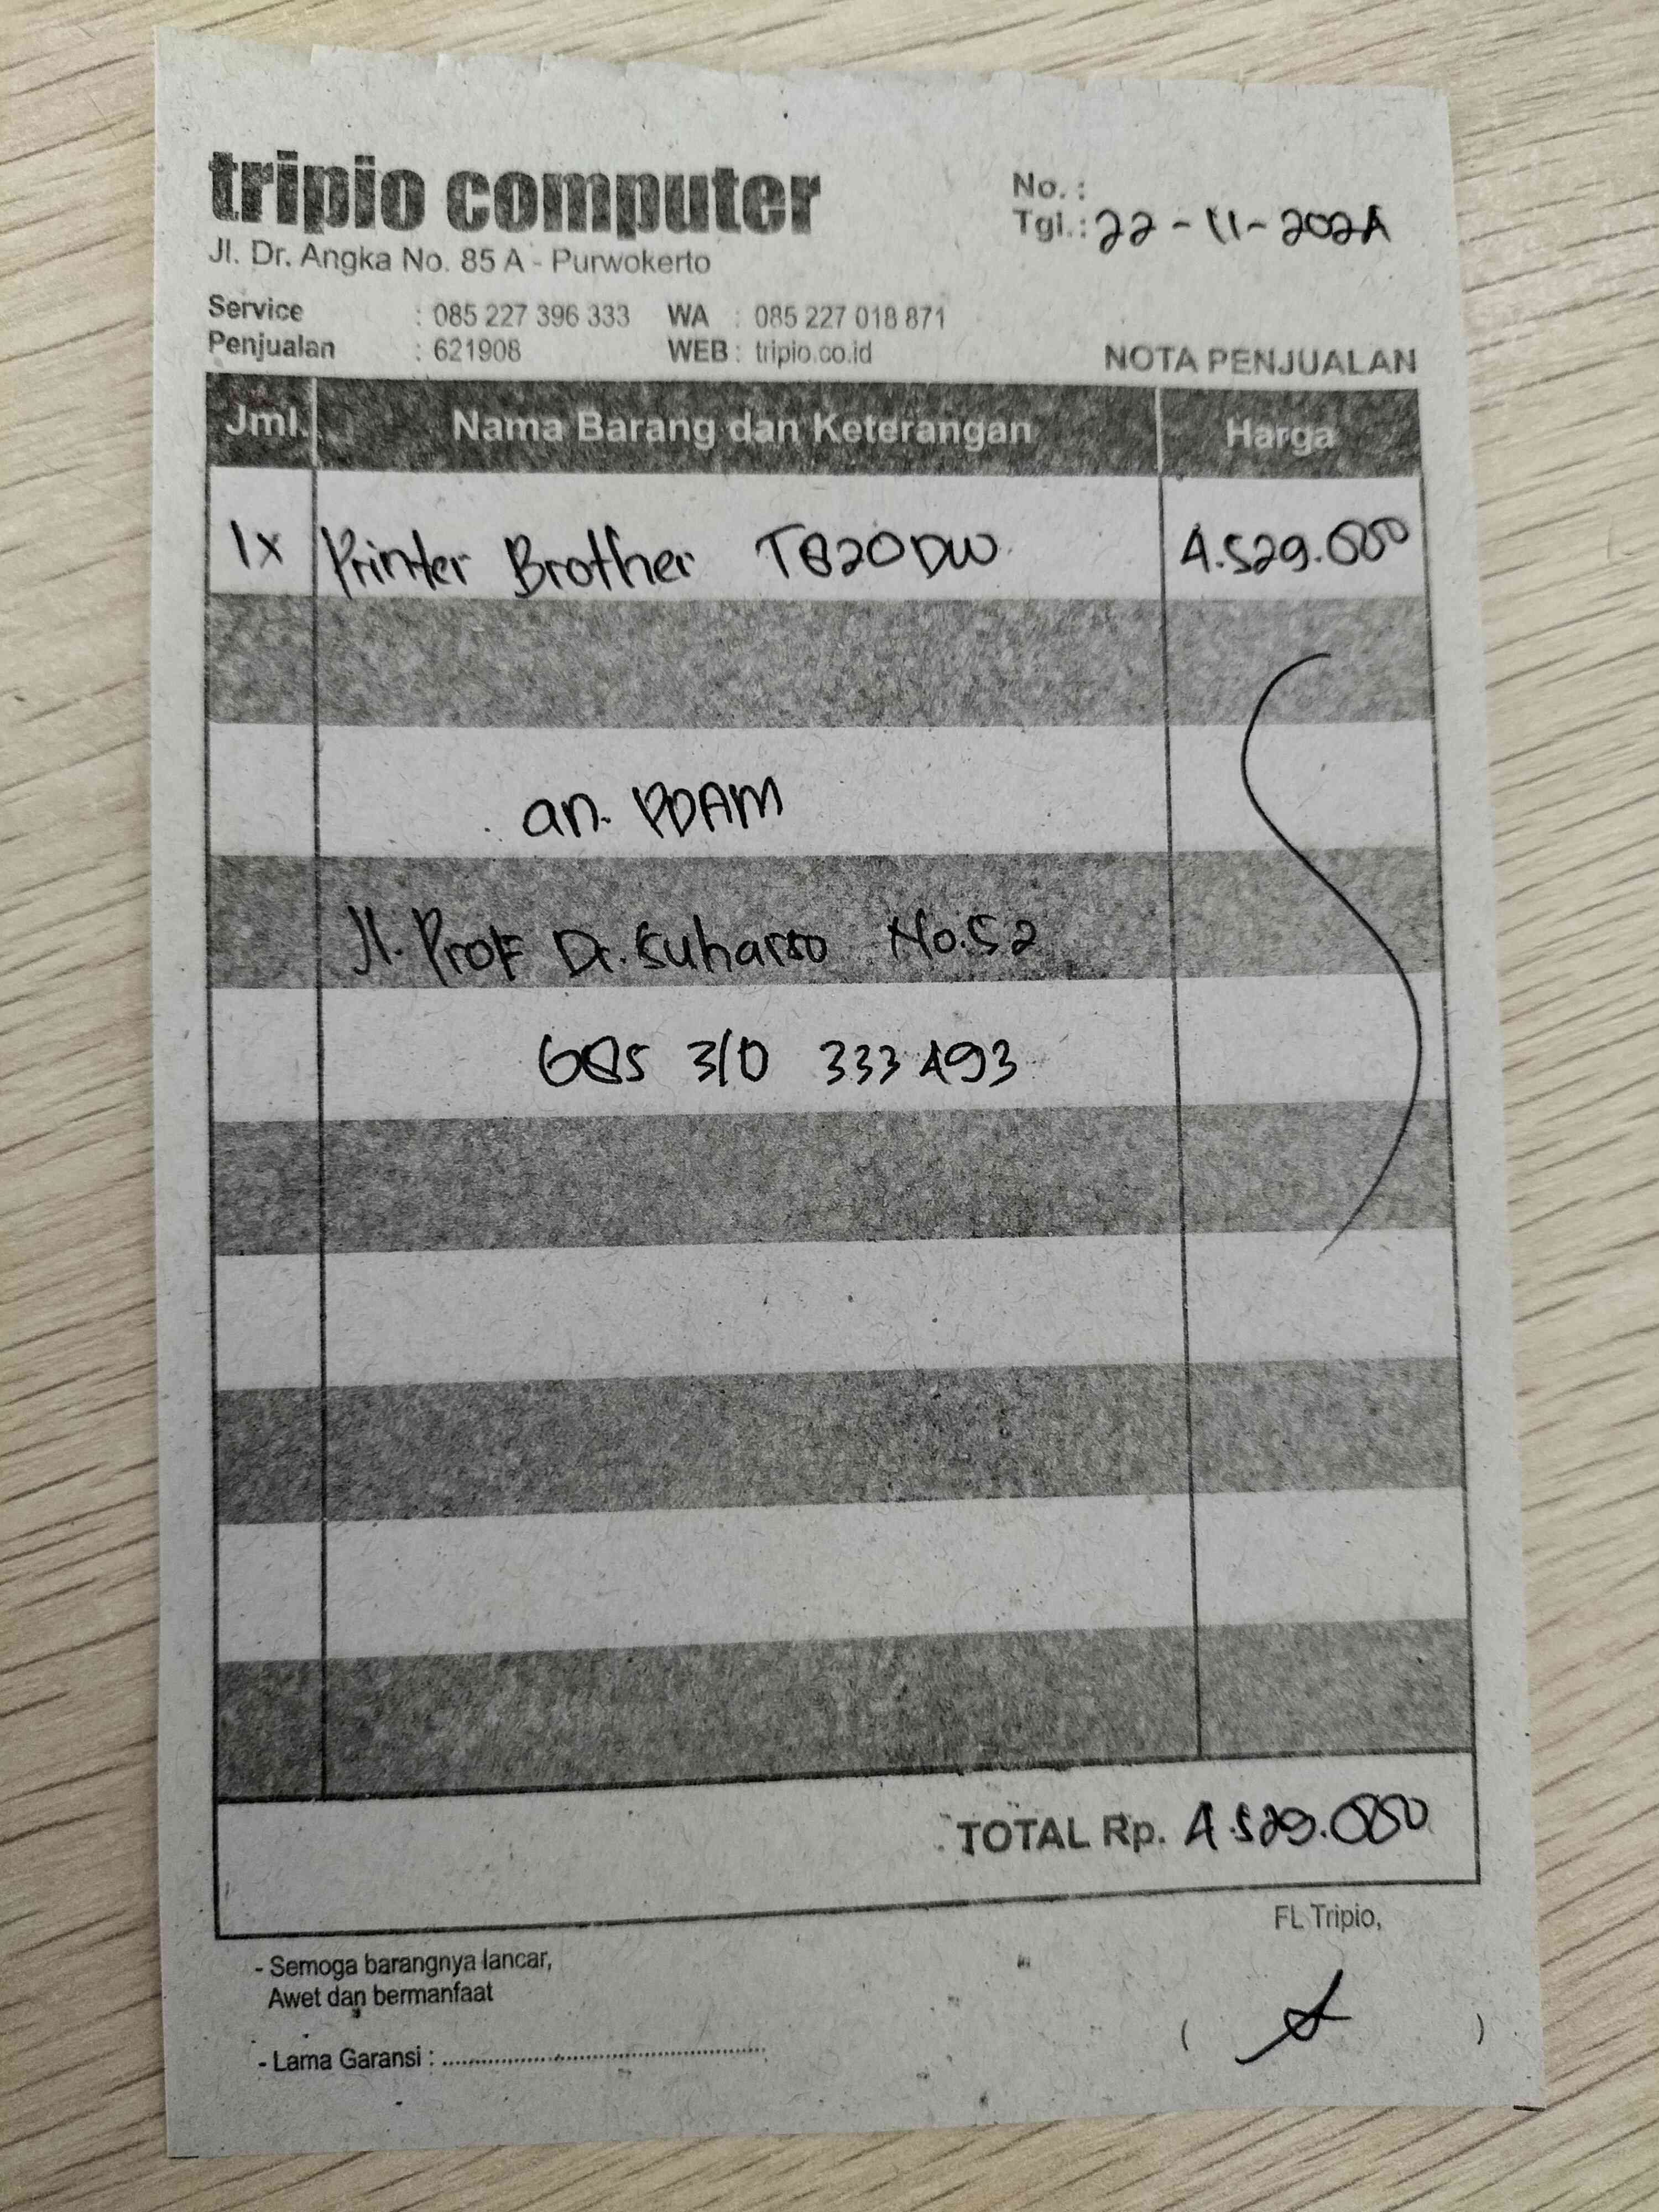 tripio computer
Jl. Dr. Angka No. 85 A - Purwokerto
No. :
Tgl. : 22-11-2024
Service : 085 227 396 333 WA : 085 227 018 871
Penjualan : 621908 WEB : tripio.co.id
NOTA PENJUALAN
Jml. Nama Barang dan Keterangan Harga
1x Printer Brother T820DW 4.529.000
an. PDAM
Jl. Prof Dr. Suharso No.52
085 310 333 493
TOTAL Rp. 4.529.000
FL Tripio,
- Semoga barangnya lancar,
Awet dan bermanfaat
- Lama Garansi : ........................................
( )